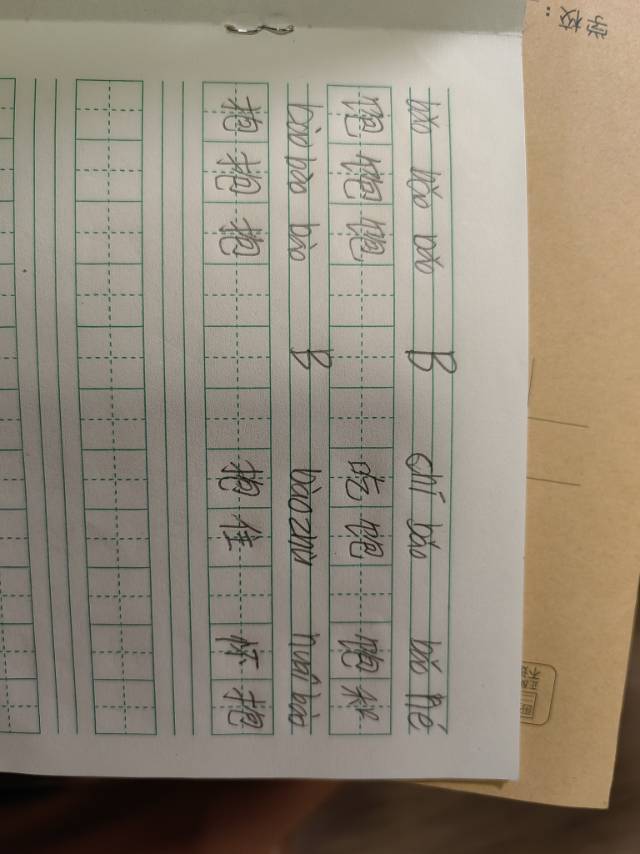 学校:
bǎo bǎo bǎo B chī bǎo bǎo hé
饱饱饱 吃饱 饱和
bào bào bào B bào zhù huái bào
抱抱抱 抱住 怀抱